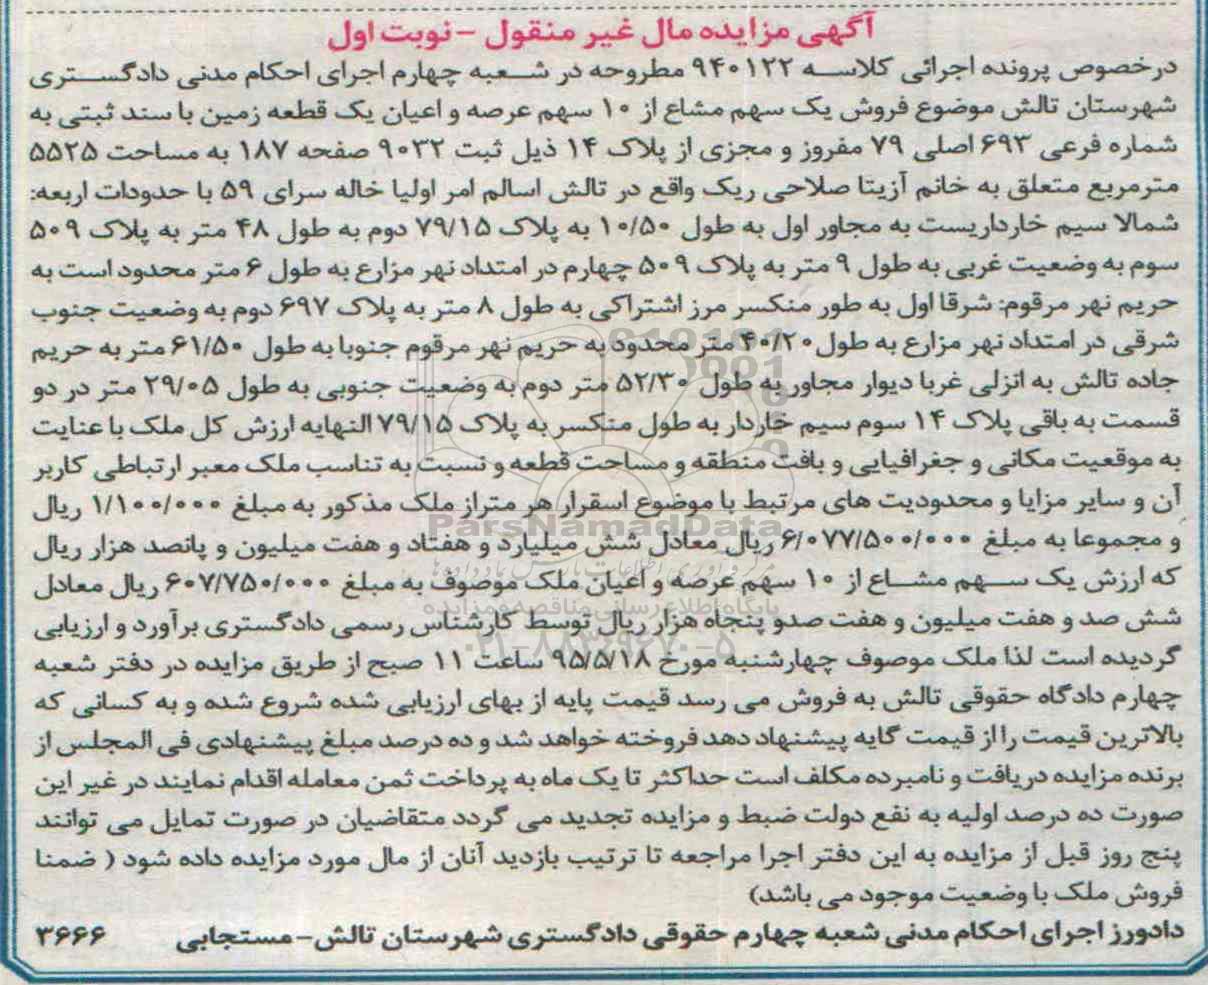 آگهی مزایده مال غیر منقول - نوبت اول
درخصوص پرونده اجرائی کلاسه ۹۴۰۱۲۲ مطروحه در شعبه چهارم اجرای احکام مدنی دادگستری
شهرستان تالش موضوع فروش یک سهم مشاع از ۱۰ سهم عرصه و اعیان یک قطعه زمین با سند ثبتی به
شماره فرعی ۶۹۳ اصلی ۷۹ مفروز و مجزی از پلاک ۱۴ ذیل ثبت ۹۰۳۲ صفحه ۱۸۷ به مساحت ۵۵۲۵
مترمربع متعلق به خانم آزیتا صلاحی ریک واقع در تالش اسالم امر اولیا خاله سرای ۵۹ با حدودات اربعه:
شمالا سیم خارداریست به مجاور اول به طول ۱۰/۵۰ به پلاک ۷۹/۱۵ دوم به طول ۴۸ متر به پلاک ۵۰۹
سوم به وضعیت غربی به طول ۹ متر به پلاک ۵۰۹ چهارم در امتداد نهر مزارع به طول ۶ متر محدود است به
حریم نهر مرقوم: شرقا اول به طور منکسر مرز اشتراکی به طول ۸ متر به پلاک ۶۹۷ دوم به وضعیت جنوب
شرقی در امتداد نهر مزارع به طول ۴۰/۲۰ متر محدود به حریم نهر مرقوم جنوبا به طول ۶۱/۵۰ متر به حریم
جاده تالش به انزلی غربا دیوار مجاور به طول ۵۲/۳۰ متر دوم به وضعیت جنوبی به طول ۲۹/۰۵ متر در دو
قسمت به باقی پلاک ۱۴ سوم سیم خاردار به طول منکسر به پلاک ۷۹/۱۵ النهایه ارزش کل ملک با عنایت
به موقعیت مکانی و جغرافیایی و بافت منطقه و مساحت قطعه و نسبت به تناسب ملک معبر ارتباطی کاربر
آن و سایر مزایا و محدودیت های مرتبط با موضوع اسقرار هر متراز ملک مذکور به مبلغ ۱/۱۰۰/۰۰۰ ریال
و مجموعا به مبلغ ۶/۰۷۷/۵۰۰/۰۰۰ ریال معادل شش میلیارد و هفتاد و هفت میلیون و پانصد هزار ریال
که ارزش یک سهم مشاع از ۱۰ سهم عرصه و اعیان ملک موصوف به مبلغ ۶۰۷/۷۵۰/۰۰۰ ریال معادل
شش صد و هفت میلیون و هفت صدو پنجاه هزار ریال توسط کارشناس رسمی دادگستری برآورد و ارزیابی
گردیده است لذا ملک موصوف چهارشنبه مورخ ۹۵/۵/۱۸ ساعت ۱۱ صبح از طریق مزایده در دفتر شعبه
چهارم دادگاه حقوقی تالش به فروش می رسد قیمت پایه از بهای ارزیابی شده شروع شده و به کسانی که
بالاترین قیمت را از قیمت گایه پیشنهاد دهد فروخته خواهد شد و ده درصد مبلغ پیشنهادی فی المجلس از
برنده مزایده دریافت و نامبرده مکلف است حداکثر تا یک ماه به پرداخت ثمن معامله اقدام نمایند در غیر این
صورت ده درصد اولیه به نفع دولت ضبط و مزایده تجدید می گردد متقاضیان در صورت تمایل می توانند
پنج روز قبل از مزایده به این دفتر اجرا مراجعه تا ترتیب بازدید آنان از مال مورد مزایده داده شود ( ضمنا
فروش ملک با وضعیت موجود می باشد)
دادورز اجرای احکام مدنی شعبه چهارم حقوقی دادگستری شهرستان تالش - مستجابی ۳۶۶۶
ParsNamadData
پایگاه اطلاع رسانی مناقصه و مزایده
۰۲۱-۸۸۳۴۹۶۷۰-۵